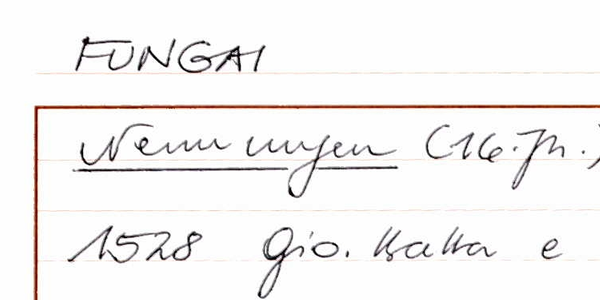 FUNGAI
Nennungen (16. Jh.)
1528 Gio. Batta e